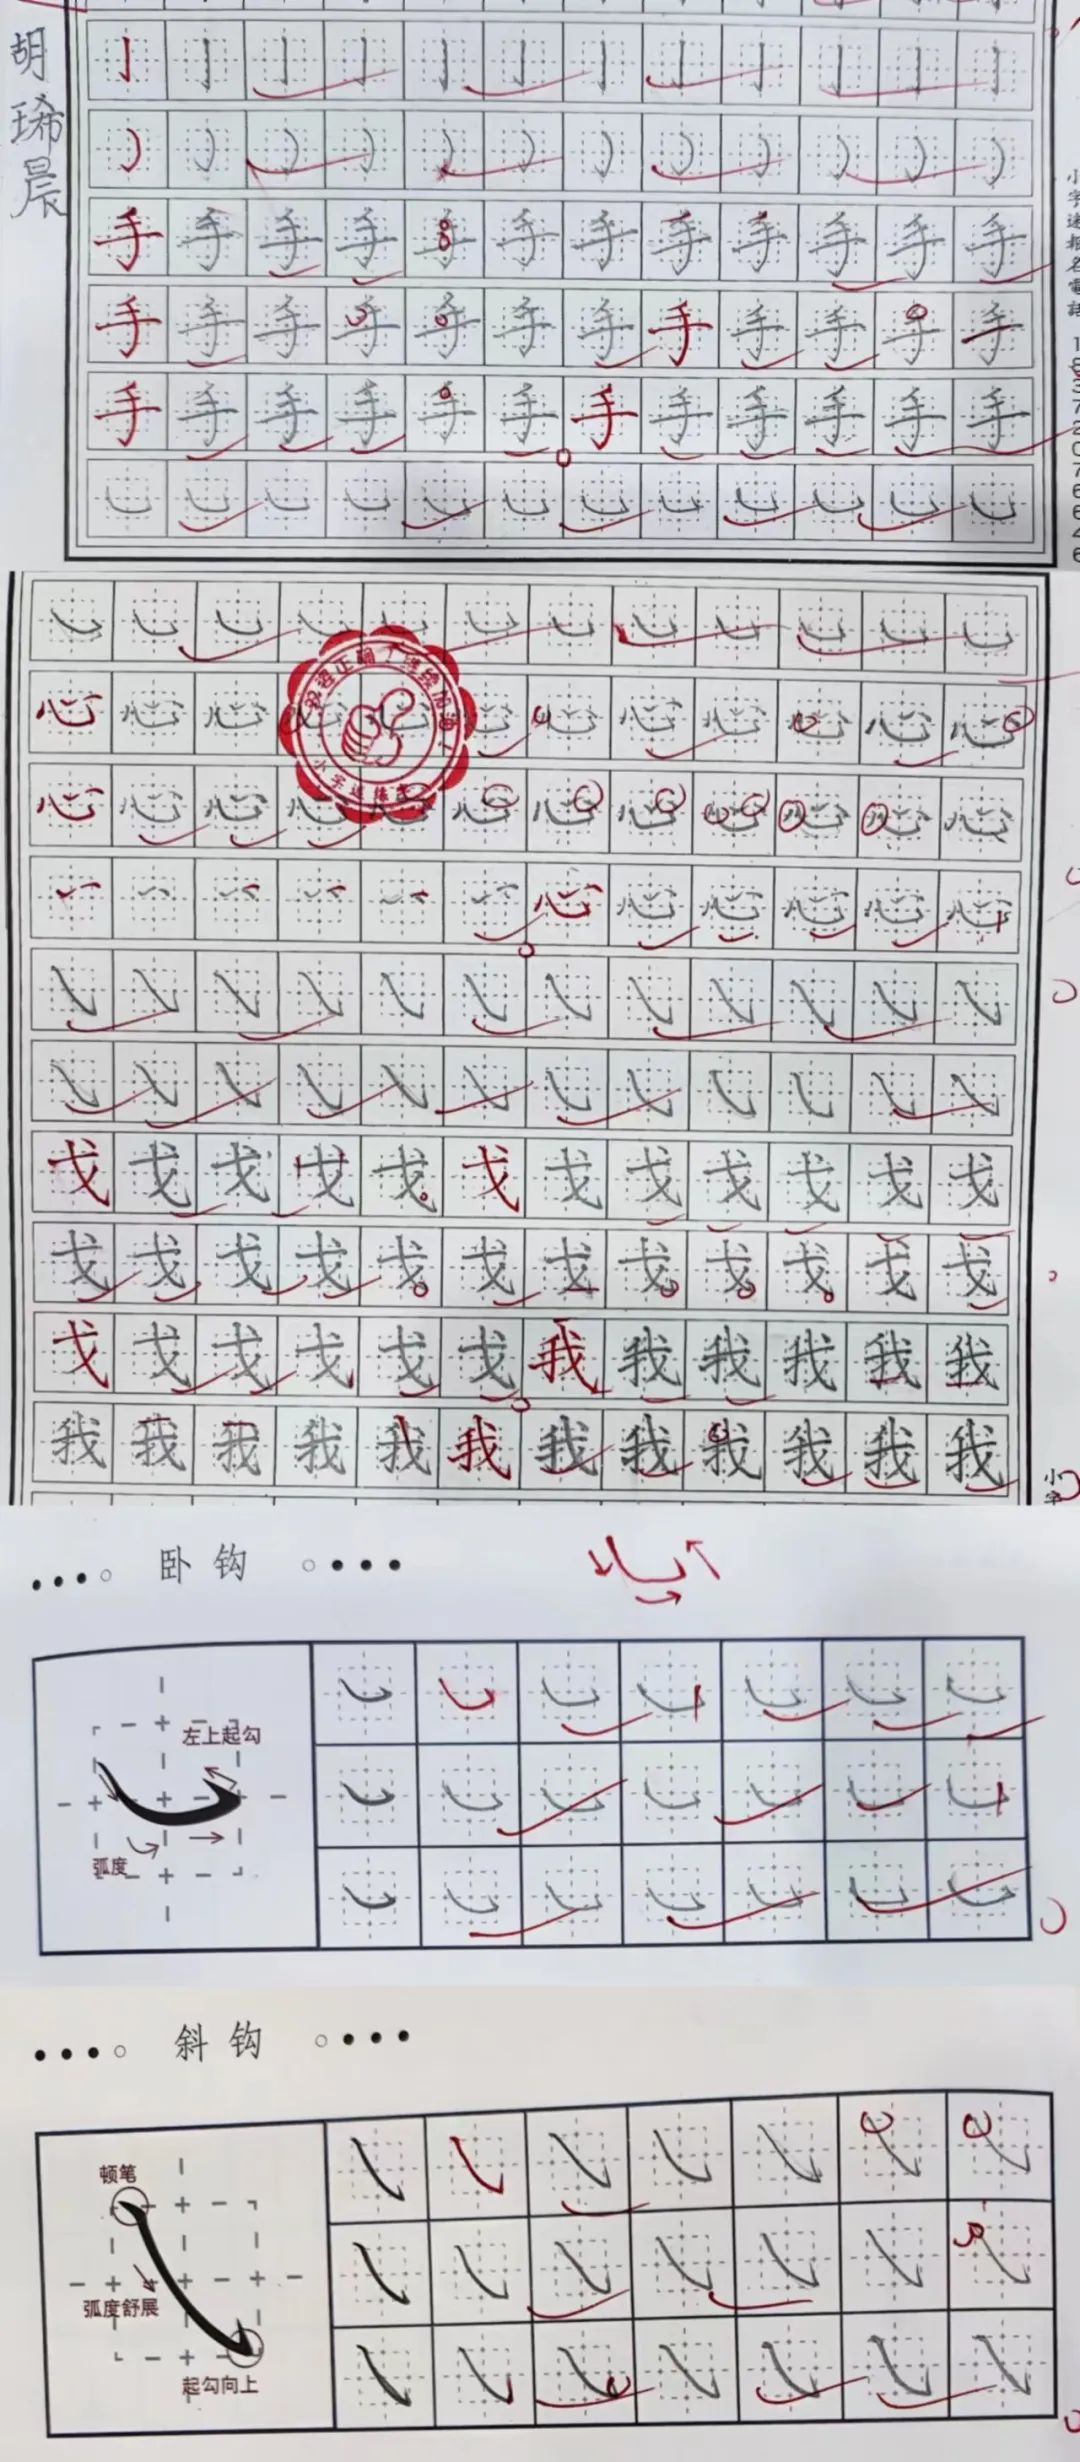 胡
琋
晨
手 手 手 手 手 手 手 手 手 手 手 手
手 手 手 手 手 手 手 手 手 手 手 手
手 手 手 手 手 手 手 手 手 手 手 手
小字速报名電話 18372076646
心 心 心 心 心 心 心 心 心 心 心
心 心 心 心 心 心 心 心 心 心 心 心
心 心 心 心 心 心
戈 戈 戈 戈 戈 戈 戈 戈 戈 戈 戈 戈
戈 戈 戈 戈 戈 戈 戈 戈 戈 戈 戈 戈
戈 戈 戈 戈 戈 戈 我 我 我 我 我 我
我 我 我 我 我 我 我 我 我 我 我 我
小字
卧钩
左上起勾
弧度
斜钩
顿笔
弧度舒展
起勾向上